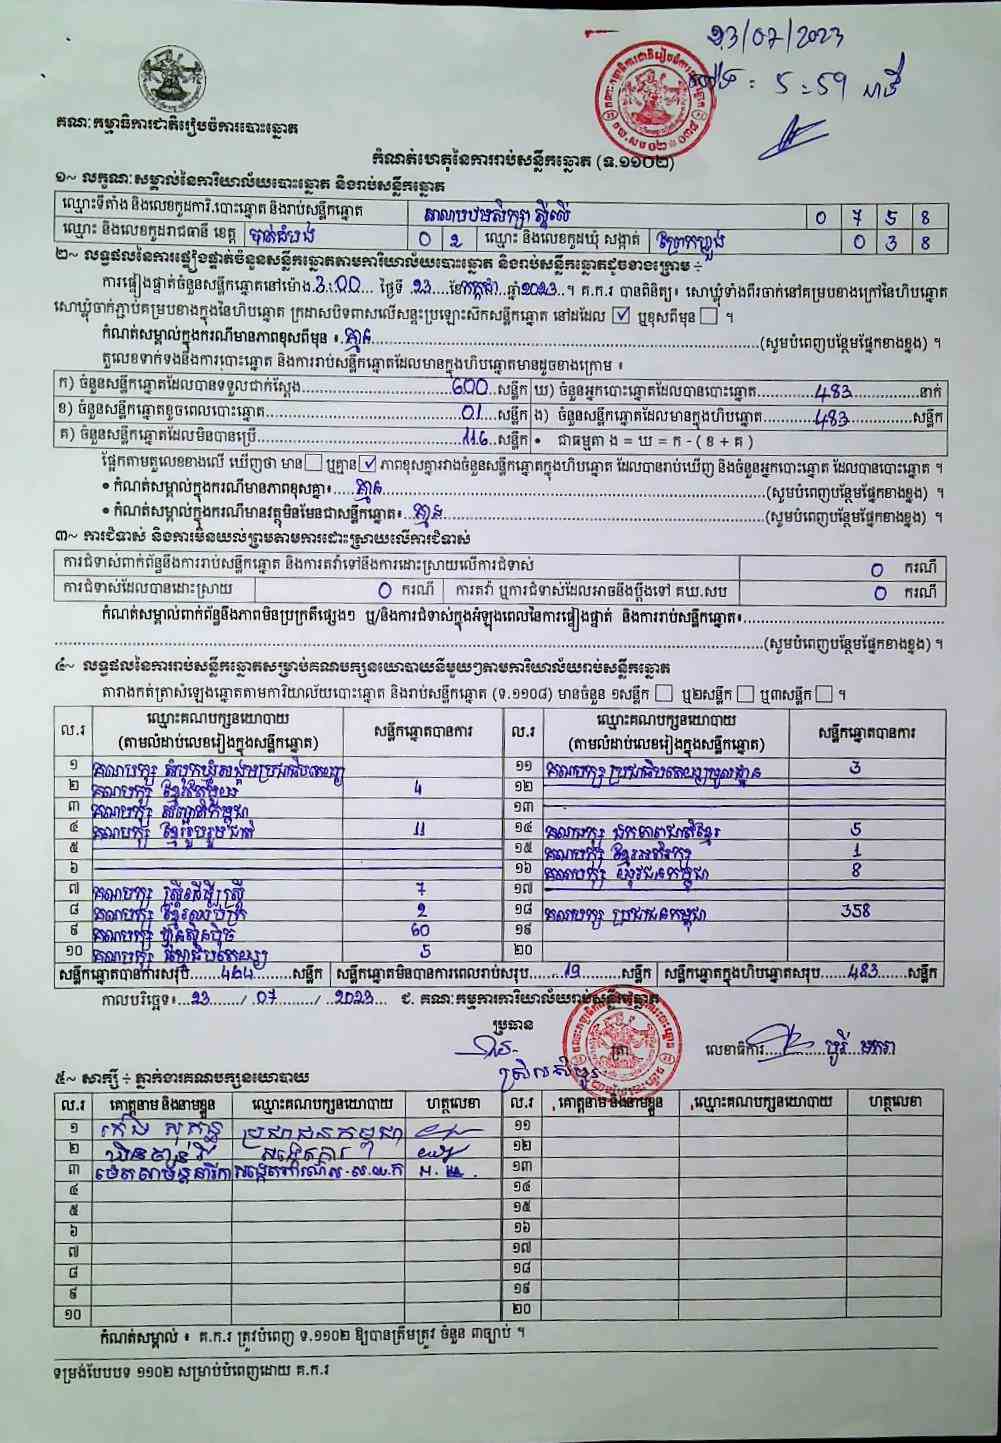 23/07/2023
ម៉ោង: 5:59 នាទី
គណៈកម្មាធិការជាតិរៀបចំការបោះឆ្នោត
កំណត់ហេតុនៃការរាប់សន្លឹកឆ្នោត (ទ.១១០២)
១~ លក្ខណៈសម្គាល់នៃការិយាល័យបោះឆ្នោត និងរាប់សន្លឹកឆ្នោត
ឈ្មោះទីតាំង និងលេខកូដការិ.បោះឆ្នោត និងរាប់សន្លឹកឆ្នោត 0 7 5 8
ឈ្មោះ និងលេខកូដរាជធានី ខេត្ត បាត់ដំបង 0 2 ឈ្មោះ និងលេខកូដឃុំ សង្កាត់ 0 3 8
២~ លទ្ធផលនៃការផ្ទៀងផ្ទាត់ចំនួនសន្លឹកឆ្នោតតាមការិយាល័យបោះឆ្នោត និងរាប់សន្លឹកឆ្នោតដូចខាងក្រោម ÷
ការផ្ទៀងផ្ទាត់ចំនួនសន្លឹកឆ្នោតនៅម៉ោង 3:00 ថ្ងៃទី 23 ខែ កក្កដា ឆ្នាំ 2023 ។ គ.ក.រ បានពិនិត្យ៖ សោឃ្លុំទាំងពីរចាក់នៅគម្របខាងក្រៅនៃហិបឆ្នោត
សោឃ្លុំចាក់ភ្ជាប់គម្របខាងក្នុងនៃហិបឆ្នោត ក្រដាសបិទពាសលើសន្ទះប្រឡោះស៊កសន្លឹកឆ្នោត នៅដដែល ☑ ឬខុសពីមុន ☐ ។
កំណត់សម្គាល់ក្នុងករណីមានភាពខុសពីមុន ៖ គ្មាន (សូមបំពេញបន្ថែមផ្នែកខាងខ្នង) ។
តួលេខទាក់ទងនឹងការបោះឆ្នោត និងការរាប់សន្លឹកឆ្នោតដែលមានក្នុងហិបឆ្នោតមានដូចខាងក្រោម ៖
ក) ចំនួនសន្លឹកឆ្នោតដែលបានទទួលជាក់ស្តែង 600 សន្លឹក ឃ) ចំនួនអ្នកបោះឆ្នោតដែលបានបោះឆ្នោត 483 នាក់
ខ) ចំនួនសន្លឹកឆ្នោតខូចពេលបោះឆ្នោត 01 សន្លឹក ង) ចំនួនសន្លឹកឆ្នោតដែលមានក្នុងហិបឆ្នោត 483 សន្លឹក
គ) ចំនួនសន្លឹកឆ្នោតដែលមិនបានប្រើ 116 សន្លឹក • ជាធម្មតា ង = ឃ = ក - ( ខ + គ )
ផ្អែកតាមតួលេខខាងលើ ឃើញថា មាន ☐ ឬគ្មាន ☑ ភាពខុសគ្នារវាងចំនួនសន្លឹកឆ្នោតក្នុងហិបឆ្នោត ដែលបានរាប់ឃើញ និងចំនួនអ្នកបោះឆ្នោត ដែលបានបោះឆ្នោត ។
• កំណត់សម្គាល់ក្នុងករណីមានភាពខុសគ្នា៖ គ្មាន (សូមបំពេញបន្ថែមផ្នែកខាងខ្នង) ។
• កំណត់សម្គាល់ក្នុងករណីមានវត្ថុមិនមែនជាសន្លឹកឆ្នោត៖ គ្មាន (សូមបំពេញបន្ថែមផ្នែកខាងខ្នង) ។
៣~ ការជំទាស់ និងការមិនយល់ព្រមតាមការដោះស្រាយលើការជំទាស់
ការជំទាស់ពាក់ព័ន្ធនឹងការរាប់សន្លឹកឆ្នោត និងការតវ៉ាទៅនឹងការដោះស្រាយលើការជំទាស់ 0 ករណី
ការជំទាស់ដែលបានដោះស្រាយ 0 ករណី ការតវ៉ា ឬការជំទាស់ដែលអាចនឹងប្តឹងទៅ គឃ.សប 0 ករណី
កំណត់សម្គាល់ពាក់ព័ន្ធនឹងភាពមិនប្រក្រតីផ្សេងៗ ឬ/និងការជំទាស់ក្នុងអំឡុងពេលនៃការផ្ទៀងផ្ទាត់ និងការរាប់សន្លឹកឆ្នោត៖
(សូមបំពេញបន្ថែមផ្នែកខាងខ្នង) ។
៤~ លទ្ធផលនៃការរាប់សន្លឹកឆ្នោតសម្រាប់គណបក្សនយោបាយនីមួយៗតាមការិយាល័យរាប់សន្លឹកឆ្នោត
តារាងកត់ត្រាសំឡេងឆ្នោតតាមការិយាល័យបោះឆ្នោត និងរាប់សន្លឹកឆ្នោត (ទ.១១០៨) មានចំនួន ១សន្លឹក ☐ ឬ២សន្លឹក ☐ ឬ៣សន្លឹក ☐ ។
ល.រ ឈ្មោះគណបក្សនយោបាយ (តាមលំដាប់លេខរៀងក្នុងសន្លឹកឆ្នោត) សន្លឹកឆ្នោតបានការ ល.រ ឈ្មោះគណបក្សនយោបាយ (តាមលំដាប់លេខរៀងក្នុងសន្លឹកឆ្នោត) សន្លឹកឆ្នោតបានការ
១ គណបក្ស សំបុកឃ្មុំសង្គមប្រជាធិបតេយ្យ ១១ គណបក្ស ប្រជាធិបតេយ្យមូលដ្ឋាន 3
២ គណបក្ស 4 ១២
៣ គណបក្ស ១៣
៤ គណបក្ស ខ្មែររួបរួមជាតិ 11 ១៤ គណបក្ស ឯកភាពជាតិខ្មែរ 5
៥ ១៥ គណបក្ស ខ្មែរអភិរក្ស 1
៦ ១៦ គណបក្ស យុវជនកម្ពុជា 8
៧ គណបក្ស ស្ត្រីដើម្បីស្ត្រី 7 ១៧
៨ គណបក្ស ខ្មែរឈប់ក្រ 2 ១៨ គណបក្ស ប្រជាជនកម្ពុជា 358
៩ គណបក្ស ហ្វ៊ុនស៊ិនប៉ិច 60 ១៩
១០ គណបក្ស ធម្មាធិបតេយ្យ 5 ២០
សន្លឹកឆ្នោតបានការសរុប 464 សន្លឹក សន្លឹកឆ្នោតមិនបានការពេលរាប់សរុប 19 សន្លឹក សន្លឹកឆ្នោតក្នុងហិបឆ្នោតសរុប 483 សន្លឹក
កាលបរិច្ឆេទ៖ 23 / 07 / 2023 ជ. គណៈកម្មការការិយាល័យរាប់សន្លឹកឆ្នោត
ប្រធាន
ត្រា លេខាធិការ
៥~ សាក្សី ÷ ភ្នាក់ងារគណបក្សនយោបាយ
ល.រ គោត្តនាម និងនាមខ្លួន ឈ្មោះគណបក្សនយោបាយ ហត្ថលេខា ល.រ គោត្តនាម និងនាមខ្លួន ឈ្មោះគណបក្សនយោបាយ ហត្ថលេខា
១ ប្រជាជនកម្ពុជា ១១
២ ១២
៣ ១៣
៤ ១៤
៥ ១៥
៦ ១៦
៧ ១៧
៨ ១៨
៩ ១៩
១០ ២០
កំណត់សម្គាល់ ៖ គ.ក.រ ត្រូវបំពេញ ទ.១១០២ ឱ្យបានត្រឹមត្រូវ ចំនួន ៣ច្បាប់ ។
ទម្រង់បែបបទ ១១០២ សម្រាប់បំពេញដោយ គ.ក.រ